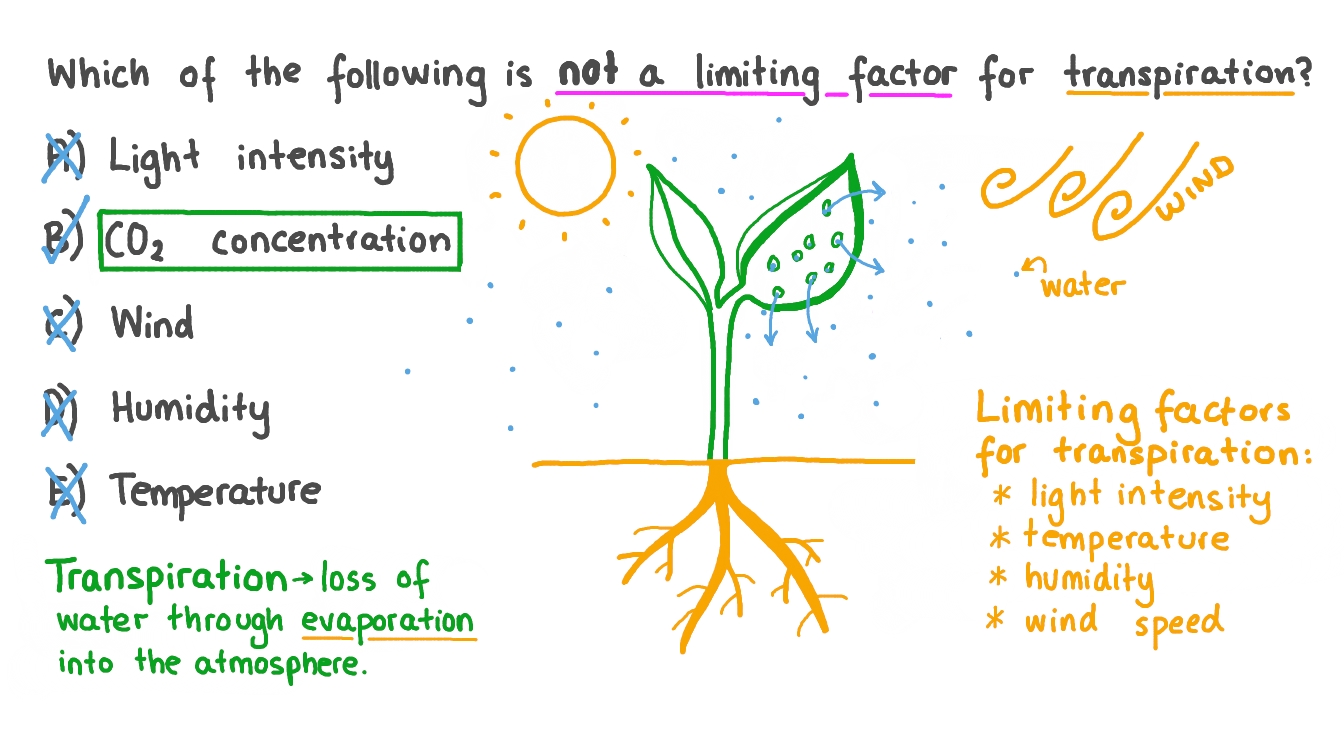 Which of the following is not a limiting factor for transpiration?
A) Light intensity
B) CO₂ concentration
C) Wind
D) Humidity
E) Temperature
Transpiration → loss of
water through evaporation
into the atmosphere.
WIND
water
Limiting factors
for transpiration:
* light intensity
* temperature
* humidity
* wind speed